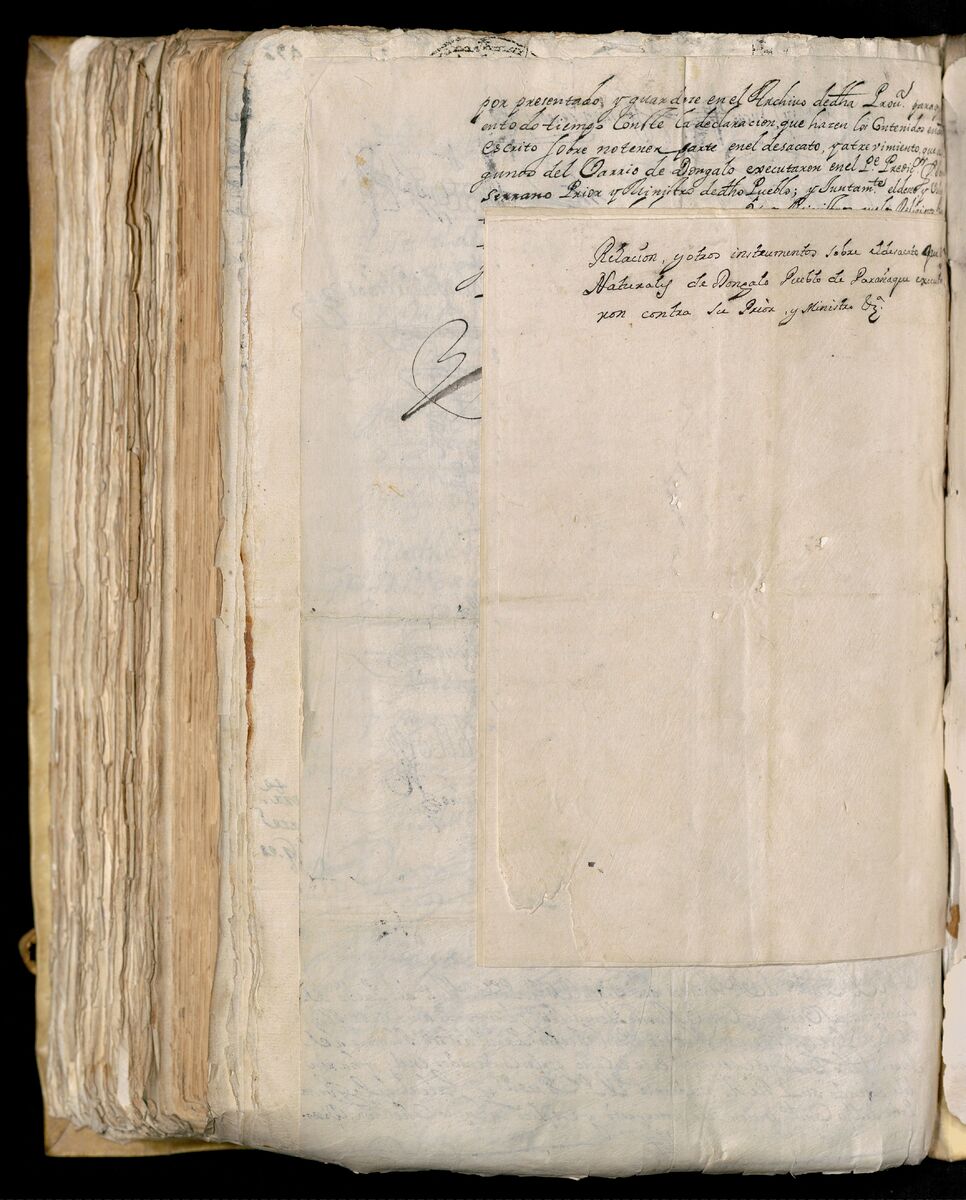 por presentado, y guardese en el Archivo de dha Prou.ª para q
en todo tiempo Conste la declaracion, que hazen los Contenidos en
escrito sobre no tener parte en el desacato, y atrevimiento, que
gunos del Varrio de Dongalo executaron en el P.e Predic.or
Serrano Prior y Ministro de dho Pueblo; y Juntam.te
Relacion, y otros instrumentos sobre el desacato que
Naturales de Dongalo Pueblo de Parañaque execut
ron contra su Prior, y Ministro &ª.